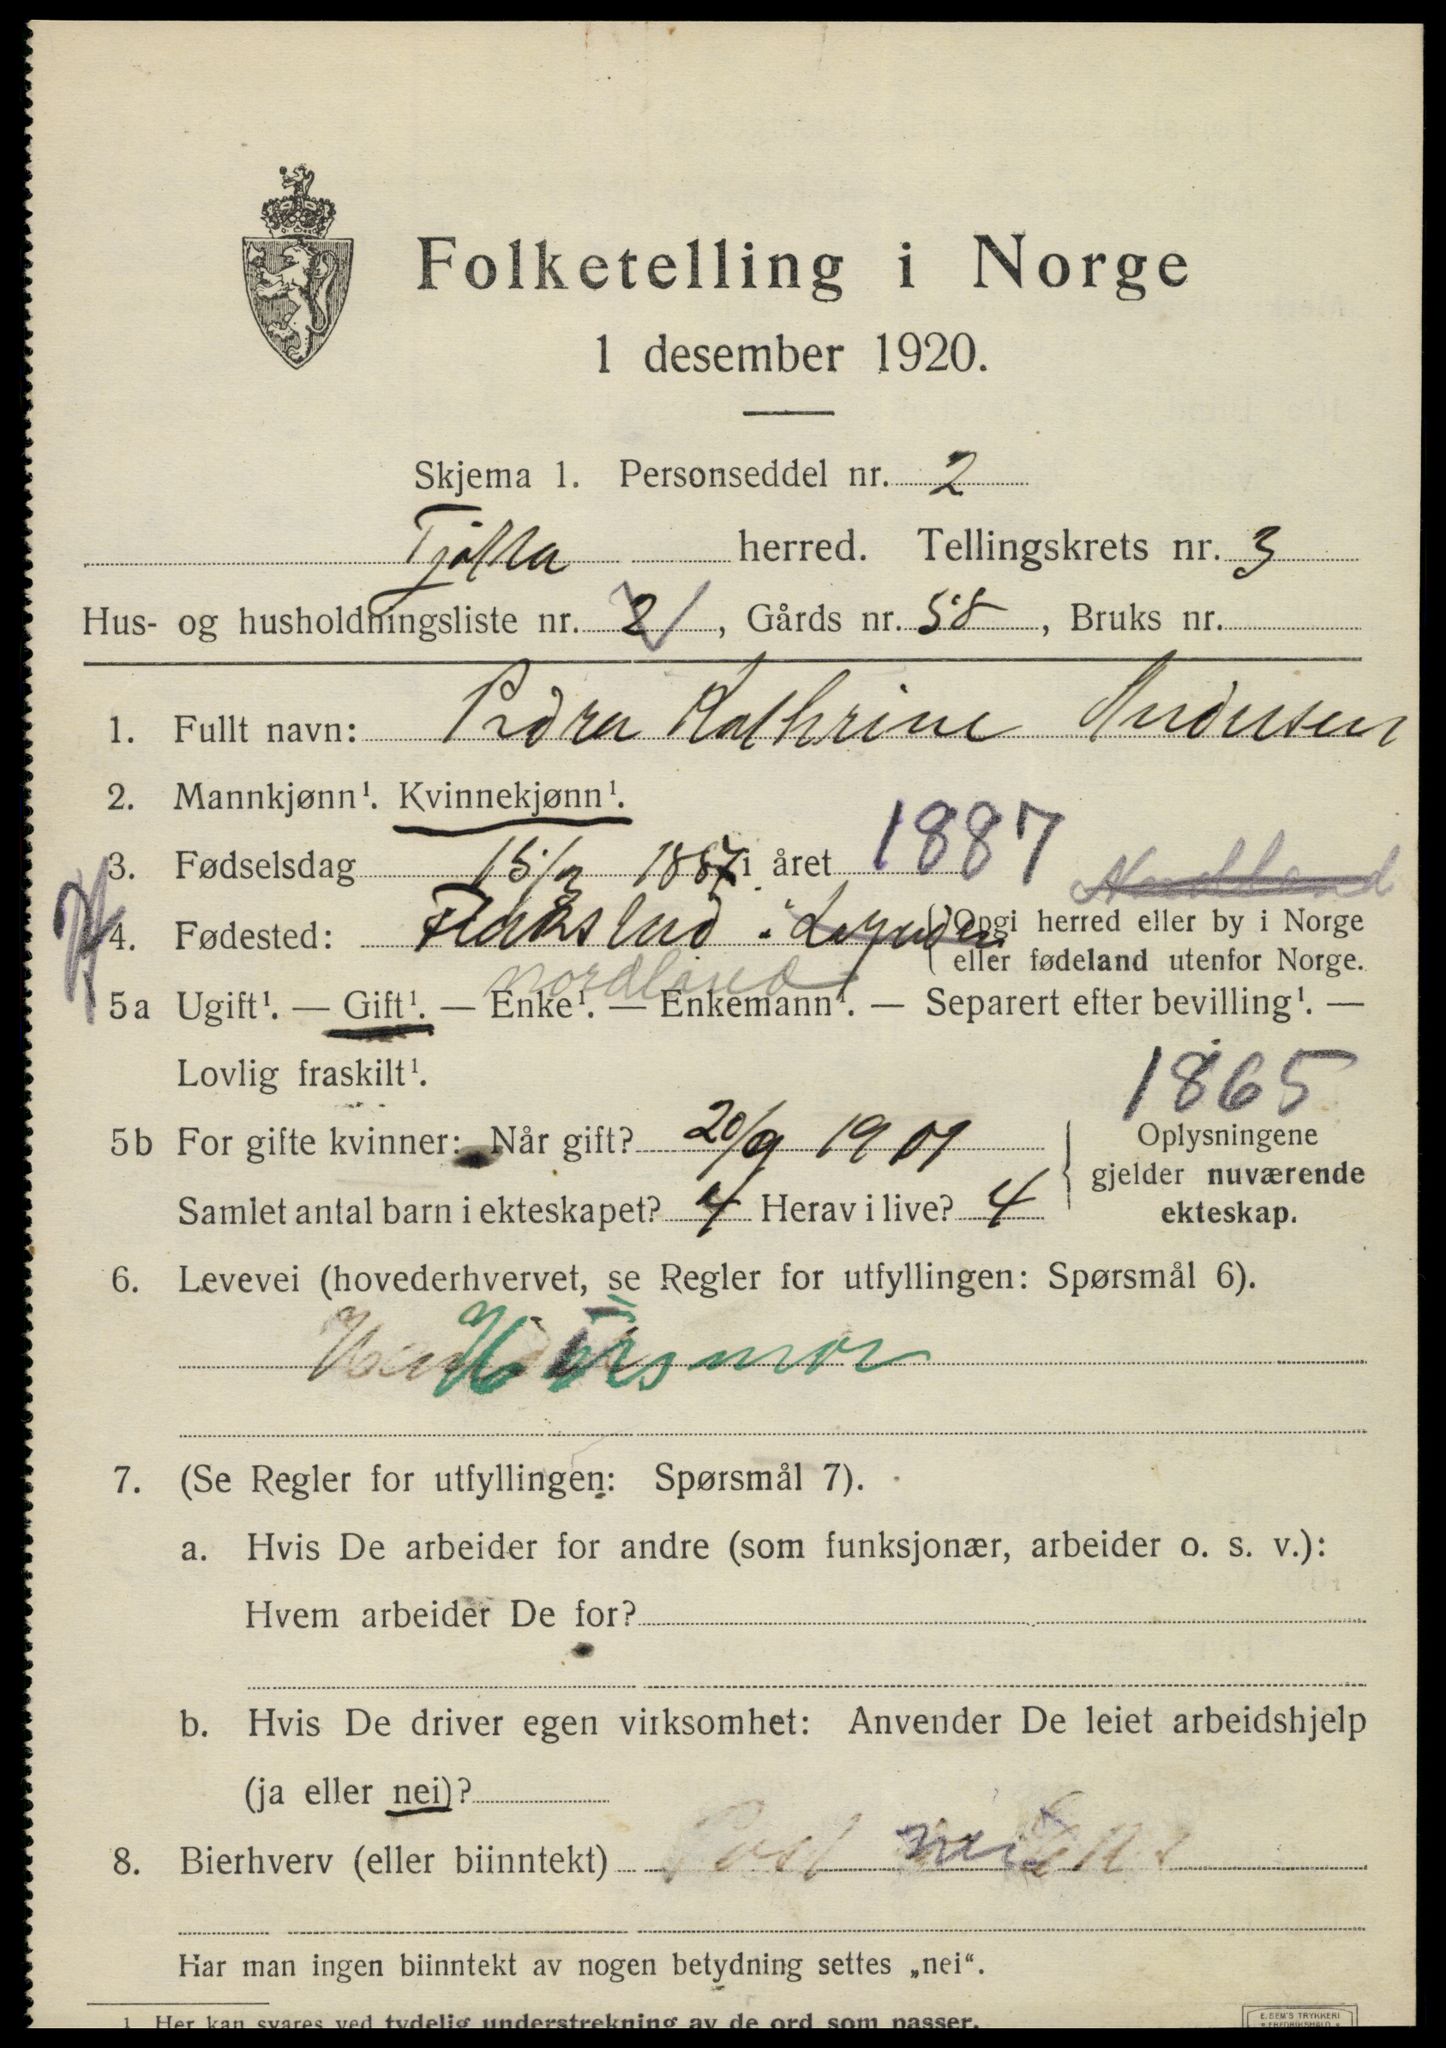 Folketelling i Norge
1 desember 1920.
Skjema 1. Personseddel nr. 2
Tjøtta herred. Tellingskrets nr. 3
Hus- og husholdningsliste nr. 2, Gårds nr. 58, Bruks nr.
1. Fullt navn: Petra Kathrine Andersen
2. Mannkjønn¹. Kvinnekjønn¹.
3. Fødselsdag 15/2 1887 i året 1887
Nordland
4. Fødested: Flakslad i
(Opgi herred eller by i Norge
eller fødeland utenfor Norge.
Nordland
5a Ugift¹. — Gift¹. — Enke¹. — Enkemann¹. — Separert efter bevilling¹. —
Lovlig fraskilt¹.
1865
5b For gifte kvinner: Når gift? 20/9 1909
Samlet antal barn i ekteskapet? 4 Herav i live? 4
Oplysningene
gjelder nuværende
ekteskap.
6. Levevei (hovederhvervet, se Regler for utfyllingen: Spørsmål 6).
Husmor
7. (Se Regler for utfyllingen: Spørsmål 7).
a. Hvis De arbeider for andre (som funksjonær, arbeider o. s. v.):
Hvem arbeider De for?
b. Hvis De driver egen virksomhet: Anvender De leiet arbeidshjelp
(ja eller nei)?
8. Bierhverv (eller biinntekt) nei
Har man ingen biinntekt av nogen betydning settes „nei“.
¹ Her kan svares ved tydelig understrekning av de ord som passer.
E. SEM'S TRYKKERI
FREDRIKSHALD